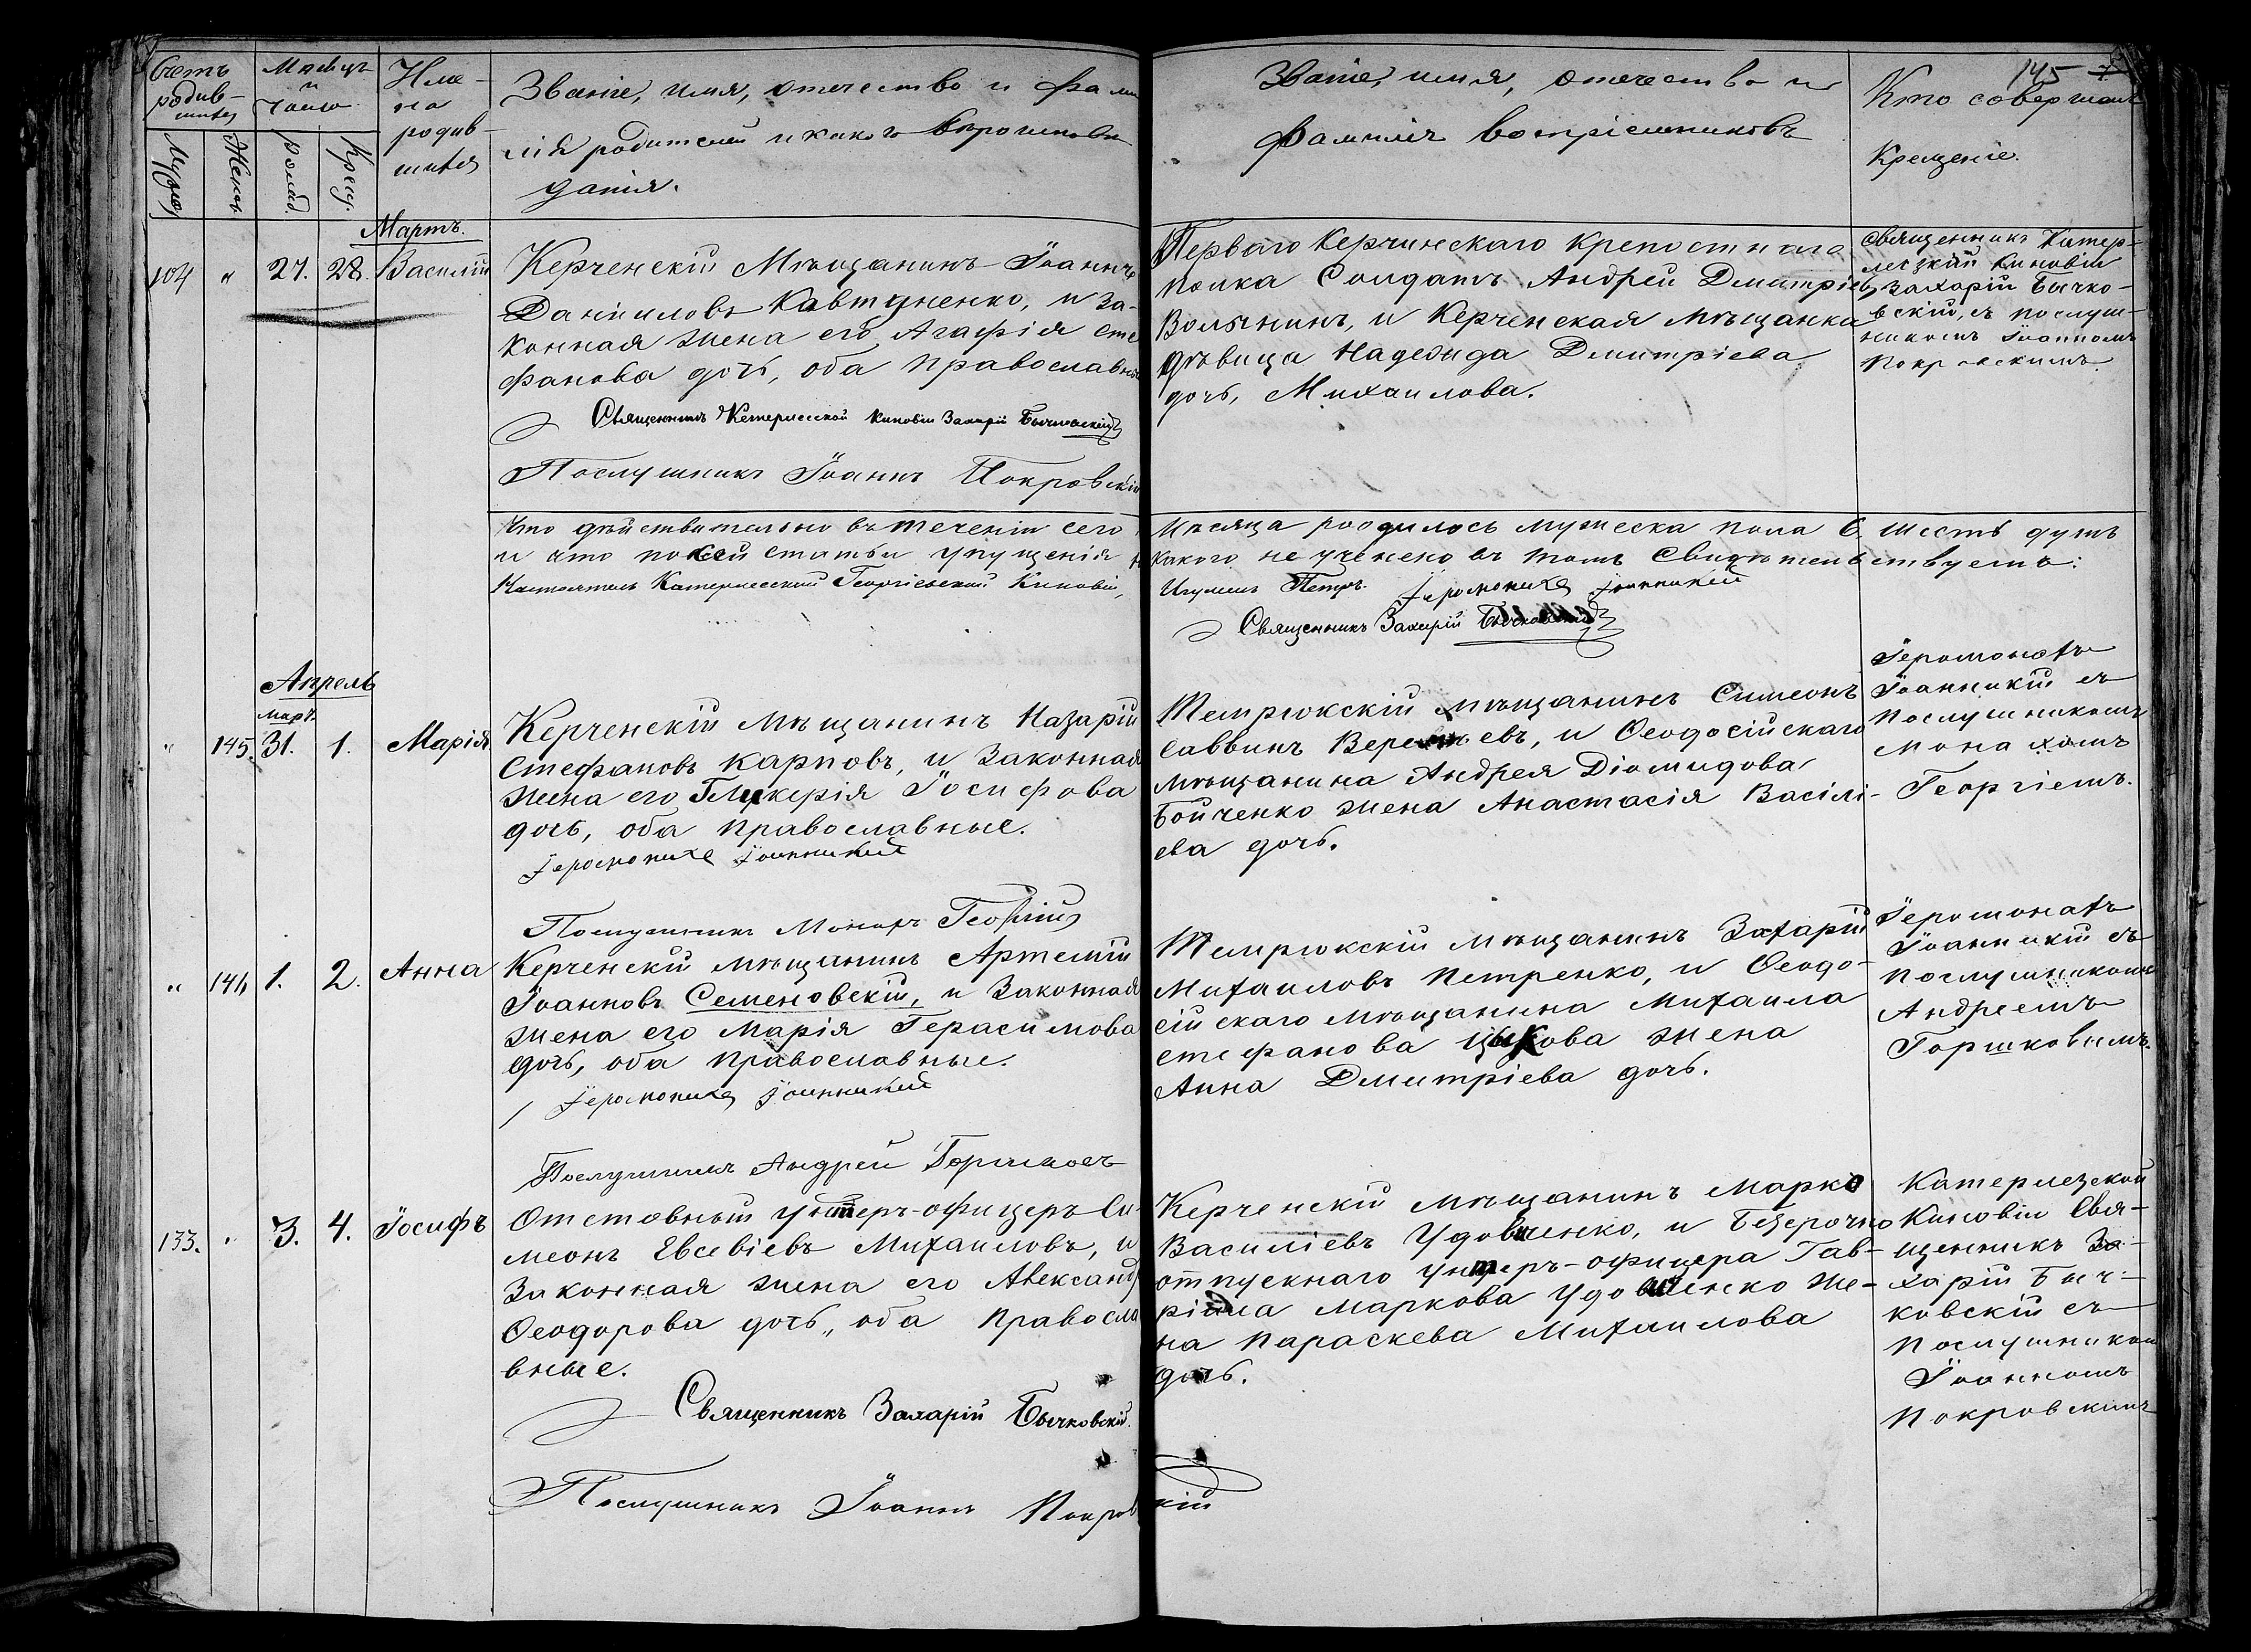 145
Счетъ родив-
шихся
Мужес.
Женск.
Мѣсяцъ
и
число
рожд.
Крещ.
Име-
на
родив-
шихся
Званіе, имя, отечество и фами
лія родителей и какого вѣроисповѣ
данія.
Званіе, имя, отечество и
фамилія воспріемниковъ
Кто совершалъ
Крещеніе.
Мартъ.
104 " 27. 28. Василій
Керченскій Мѣщанинъ Іоаннъ
Даніиловъ Кавтуненко, и за-
конная жена его Агафія Сте
фанова дочь, оба Православны
Священникъ Катерлесской Киновіи Захарій Бычковскій
Послушникъ Іоаннъ Покровскій
Перваго Керчинскаго Крепостнаго
полка Солдатъ Андрей Дмитріевъ
Волынинъ, и Керченская мѣщанка
дѣвица Надежда Дмитріева
дочь, Михаилова.
Священникъ Катер-
лезкій Киновіи
Захарій Бычко-
вскій, съ послуш-
никомъ Іоанномъ
Покровскимъ.
Что дѣйствительно въ теченіи сего мѣсяца родилось мужеска пола 6. шесть душъ
и что по сей статьи упущенія никакого не учинено въ томъ Свидѣтельствуемъ:
Настоятель Катерлесской Георгіевской Киновіи, Игуменъ Петръ. Іеромонахъ Іоанникій
Священникъ Захарій Бычковскій
Апрель
Мартъ
" 145. 31. 1. Марія
Керченскій Мѣщанинъ Назарій
Стефановъ Карповъ, и Законная
жена его Гликерія Іосифова
дочь, оба Православные.
Іеромонахъ Іоанникій
Послушникъ Монахъ Георгій
Темрюкскій мѣщанинъ Симеонъ
Саввинъ, и Ѳеодосійскаго
мѣщанина Андрея Діомидова
Бойченко жена Анастасія Васілі-
ева дочь.
Іеромонахъ
Іоанникій съ
Послушникомъ
Монахомъ
Георгіемъ.
" 146 1. 2. Анна
Керченскій мѣщанинъ Артемій
Іоанновъ Семеновскій, и Законная
жена его Марія Герасимова
дочь, оба Православные.
Іеромонахъ Іоанникій
Послушникъ Андрей Горшковъ
Темрюкскій мѣщанинъ Захарій
Михаиловъ Петренко, и Ѳеодо-
сійскаго мѣщанина Михаила
Стефанова Цыкова жена
Анна Дмитріева дочь.
Іеромонахъ
Іоанникій съ
послушникомъ
Андреемъ
Горшковымъ.
133. " 3. 4. Іосифъ
Отставный унтеръ-офицеръ Си-
меонъ Евсевіевъ Михаиловъ, и
Законная жена его Александ
Ѳеодорова дочь, оба Правосла
вные.
Священникъ Захарій Бычковскій.
Послушникъ Іоаннъ Покровскій
Керченскій мѣщанинъ Марко
Василіевъ Удовченко, и Безсрочно
отпускнаго унтеръ-офицера Гав-
ріила Маркова Удовченко же-
на Параскева Михаилова
дочь.
Катерлезской
Киновіи Свя-
щенникъ За-
харій Быч-
ковскій съ
послушником
Іоанномъ
Покровскимъ